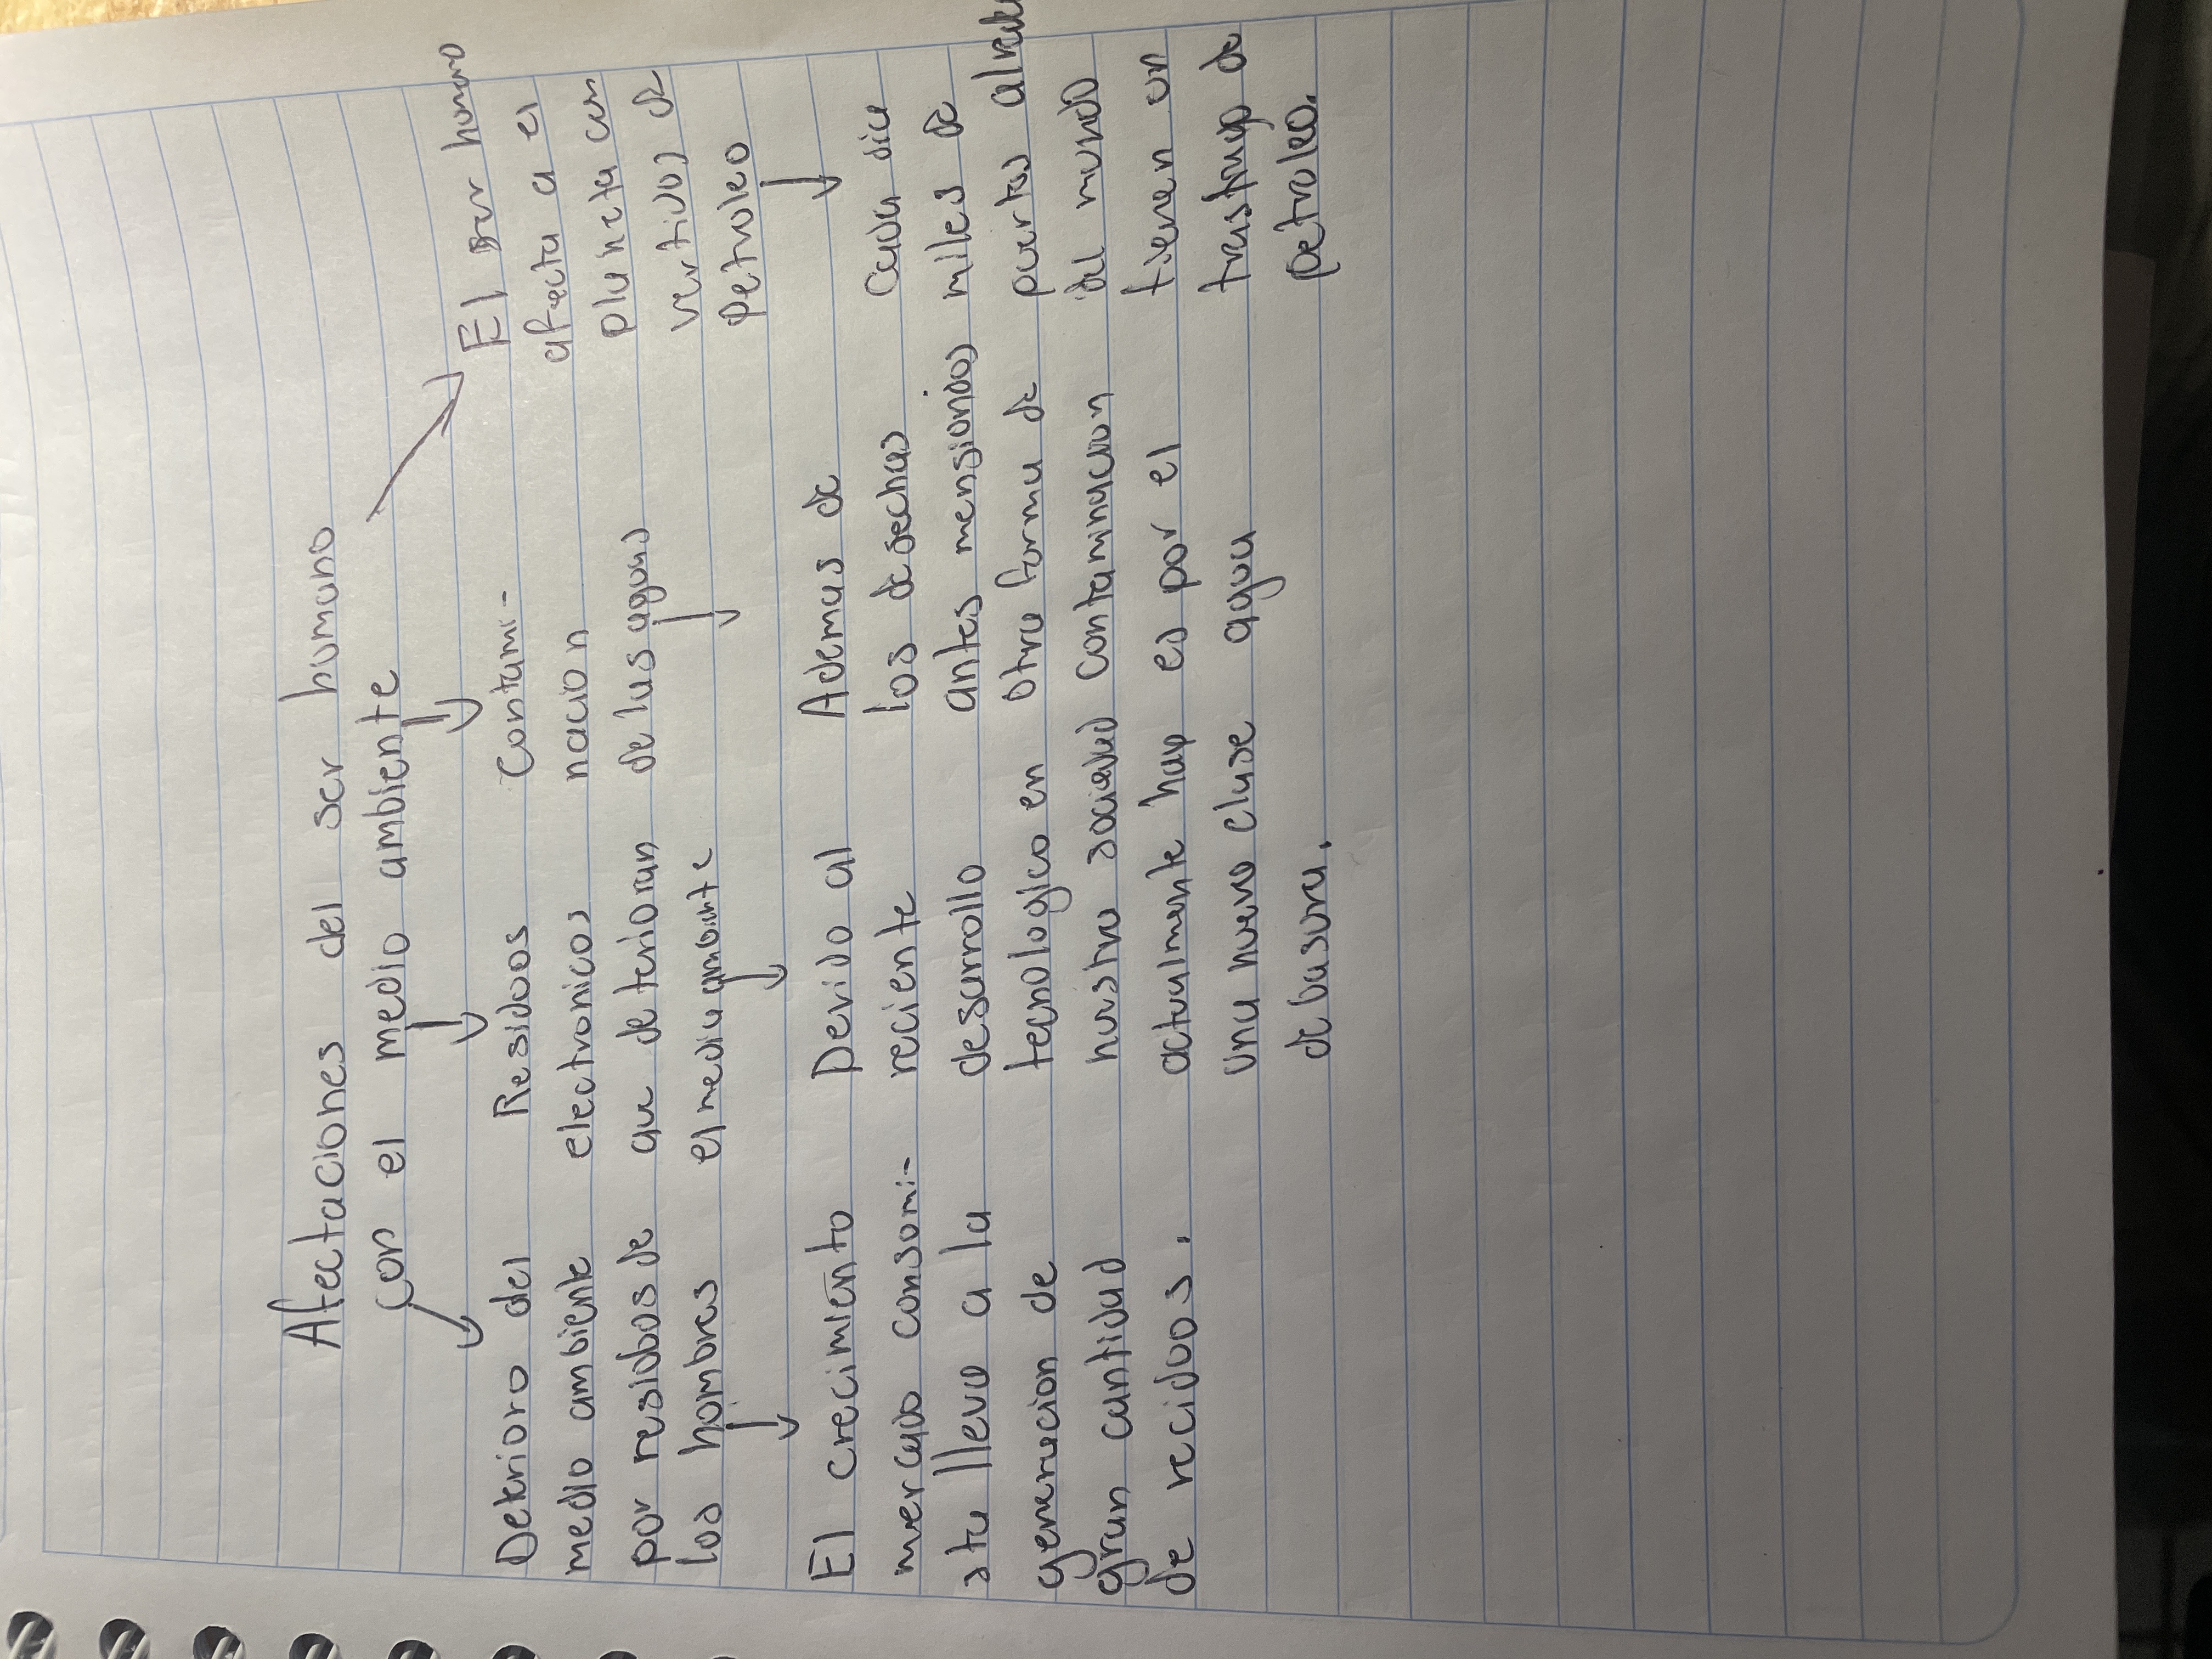 Afectaciones del ser humano
con el medio ambiente
Deterioro del
medio ambiente
por residuos de
los hombres
El crecimiento
mercado consumi-
sta lleva a la
generacion de
gran cantidad
de recidos.
Residuos
electronicos
que deterioran
el medio ambiente
Devido al
reciente
desarrollo
tecnologico en
nuestra sociedad
actualmente hay
una nueva clase
de basura.
Contami-
nacion
de las aguas
Ademas de
los desechos
antes mensionados
otra forma de
contaminacion
es por el
agua
El ser humano
afecta a el
planeta con
vertidos de
Petroleo
Cada dia
miles de
puertos
del mundo
tienen un
de
petroleo.